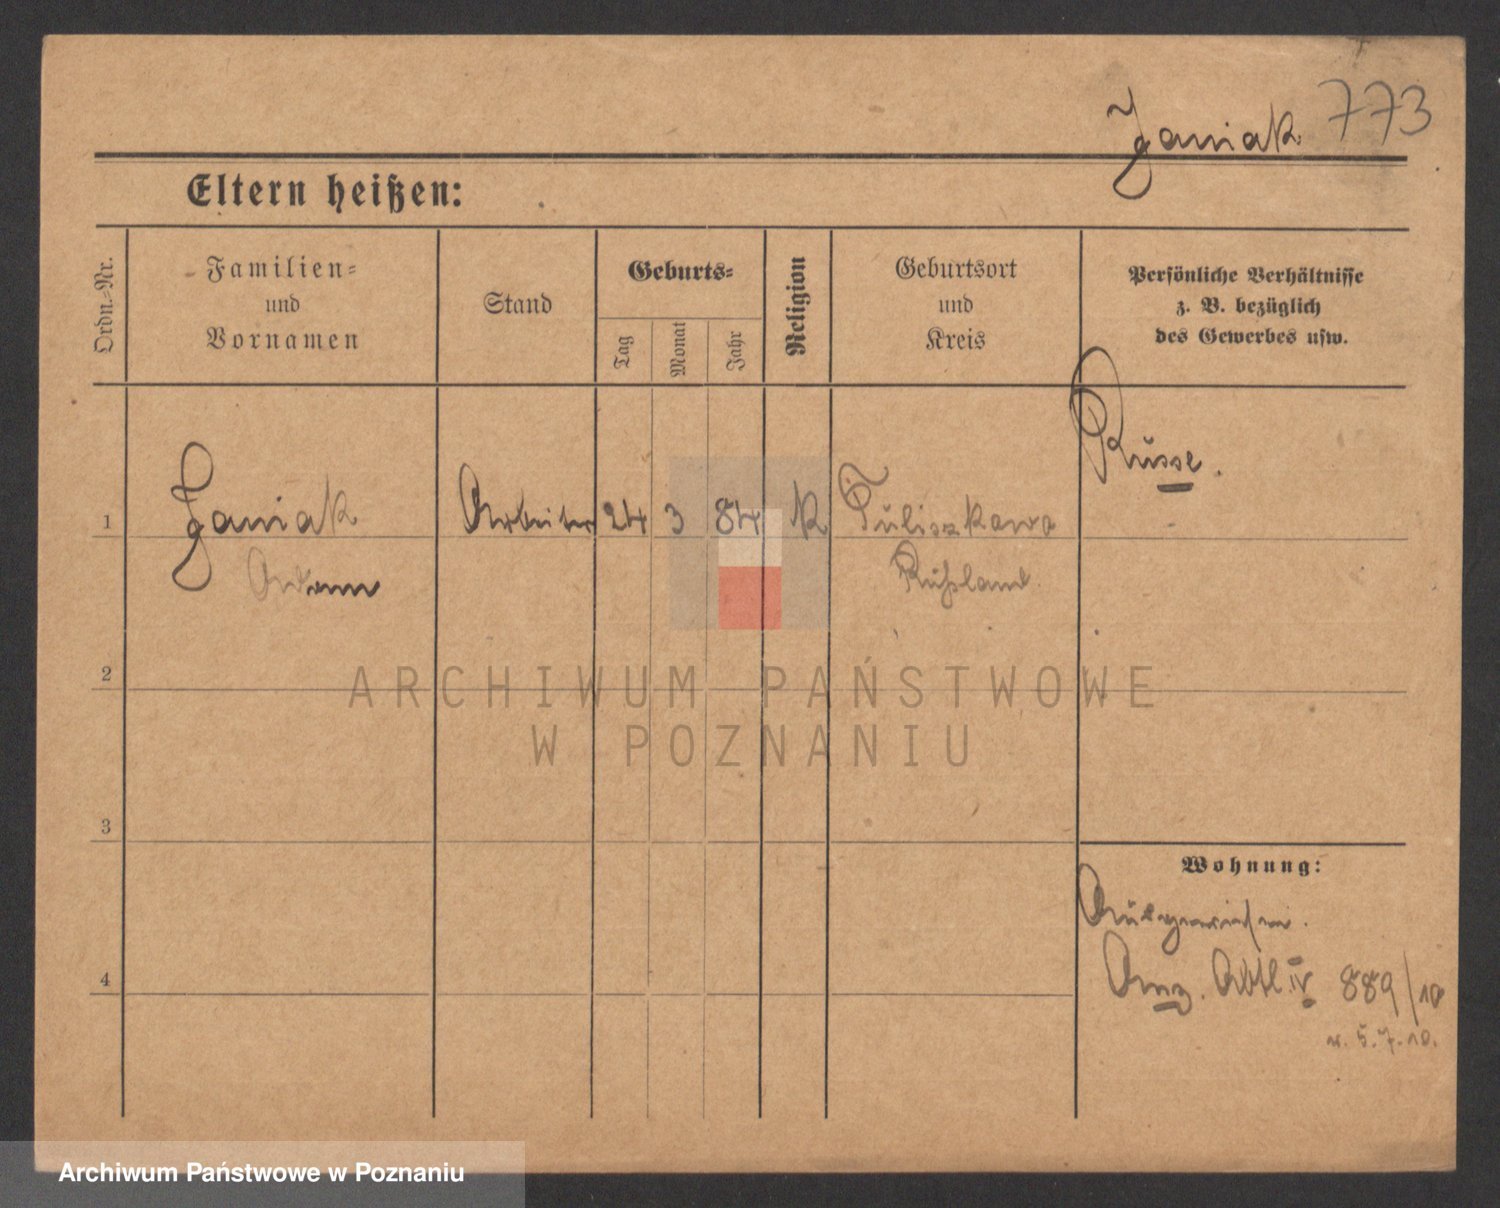 Janiak 773
Eltern heißen:
Ordn.-Nr.
Familien-
und
Vornamen
Stand
Geburts-
Tag
Monat
Jahr
Religion
Geburtsort
und
Kreis
Persönliche Verhältnisse
z. B. bezüglich
des Gewerbes usw.
Russe.
1
Janiak Arbeiter 24 3 84 K Tuliszkowo
Rußland
2
ARCHIWUM PAŃSTWOWE
W POZNANIU
3
Wohnung:
Ausgewiesen.
4
Anz. Abtl. IV 889/10
v. 5.7.10.
Archiwum Państwowe w Poznaniu